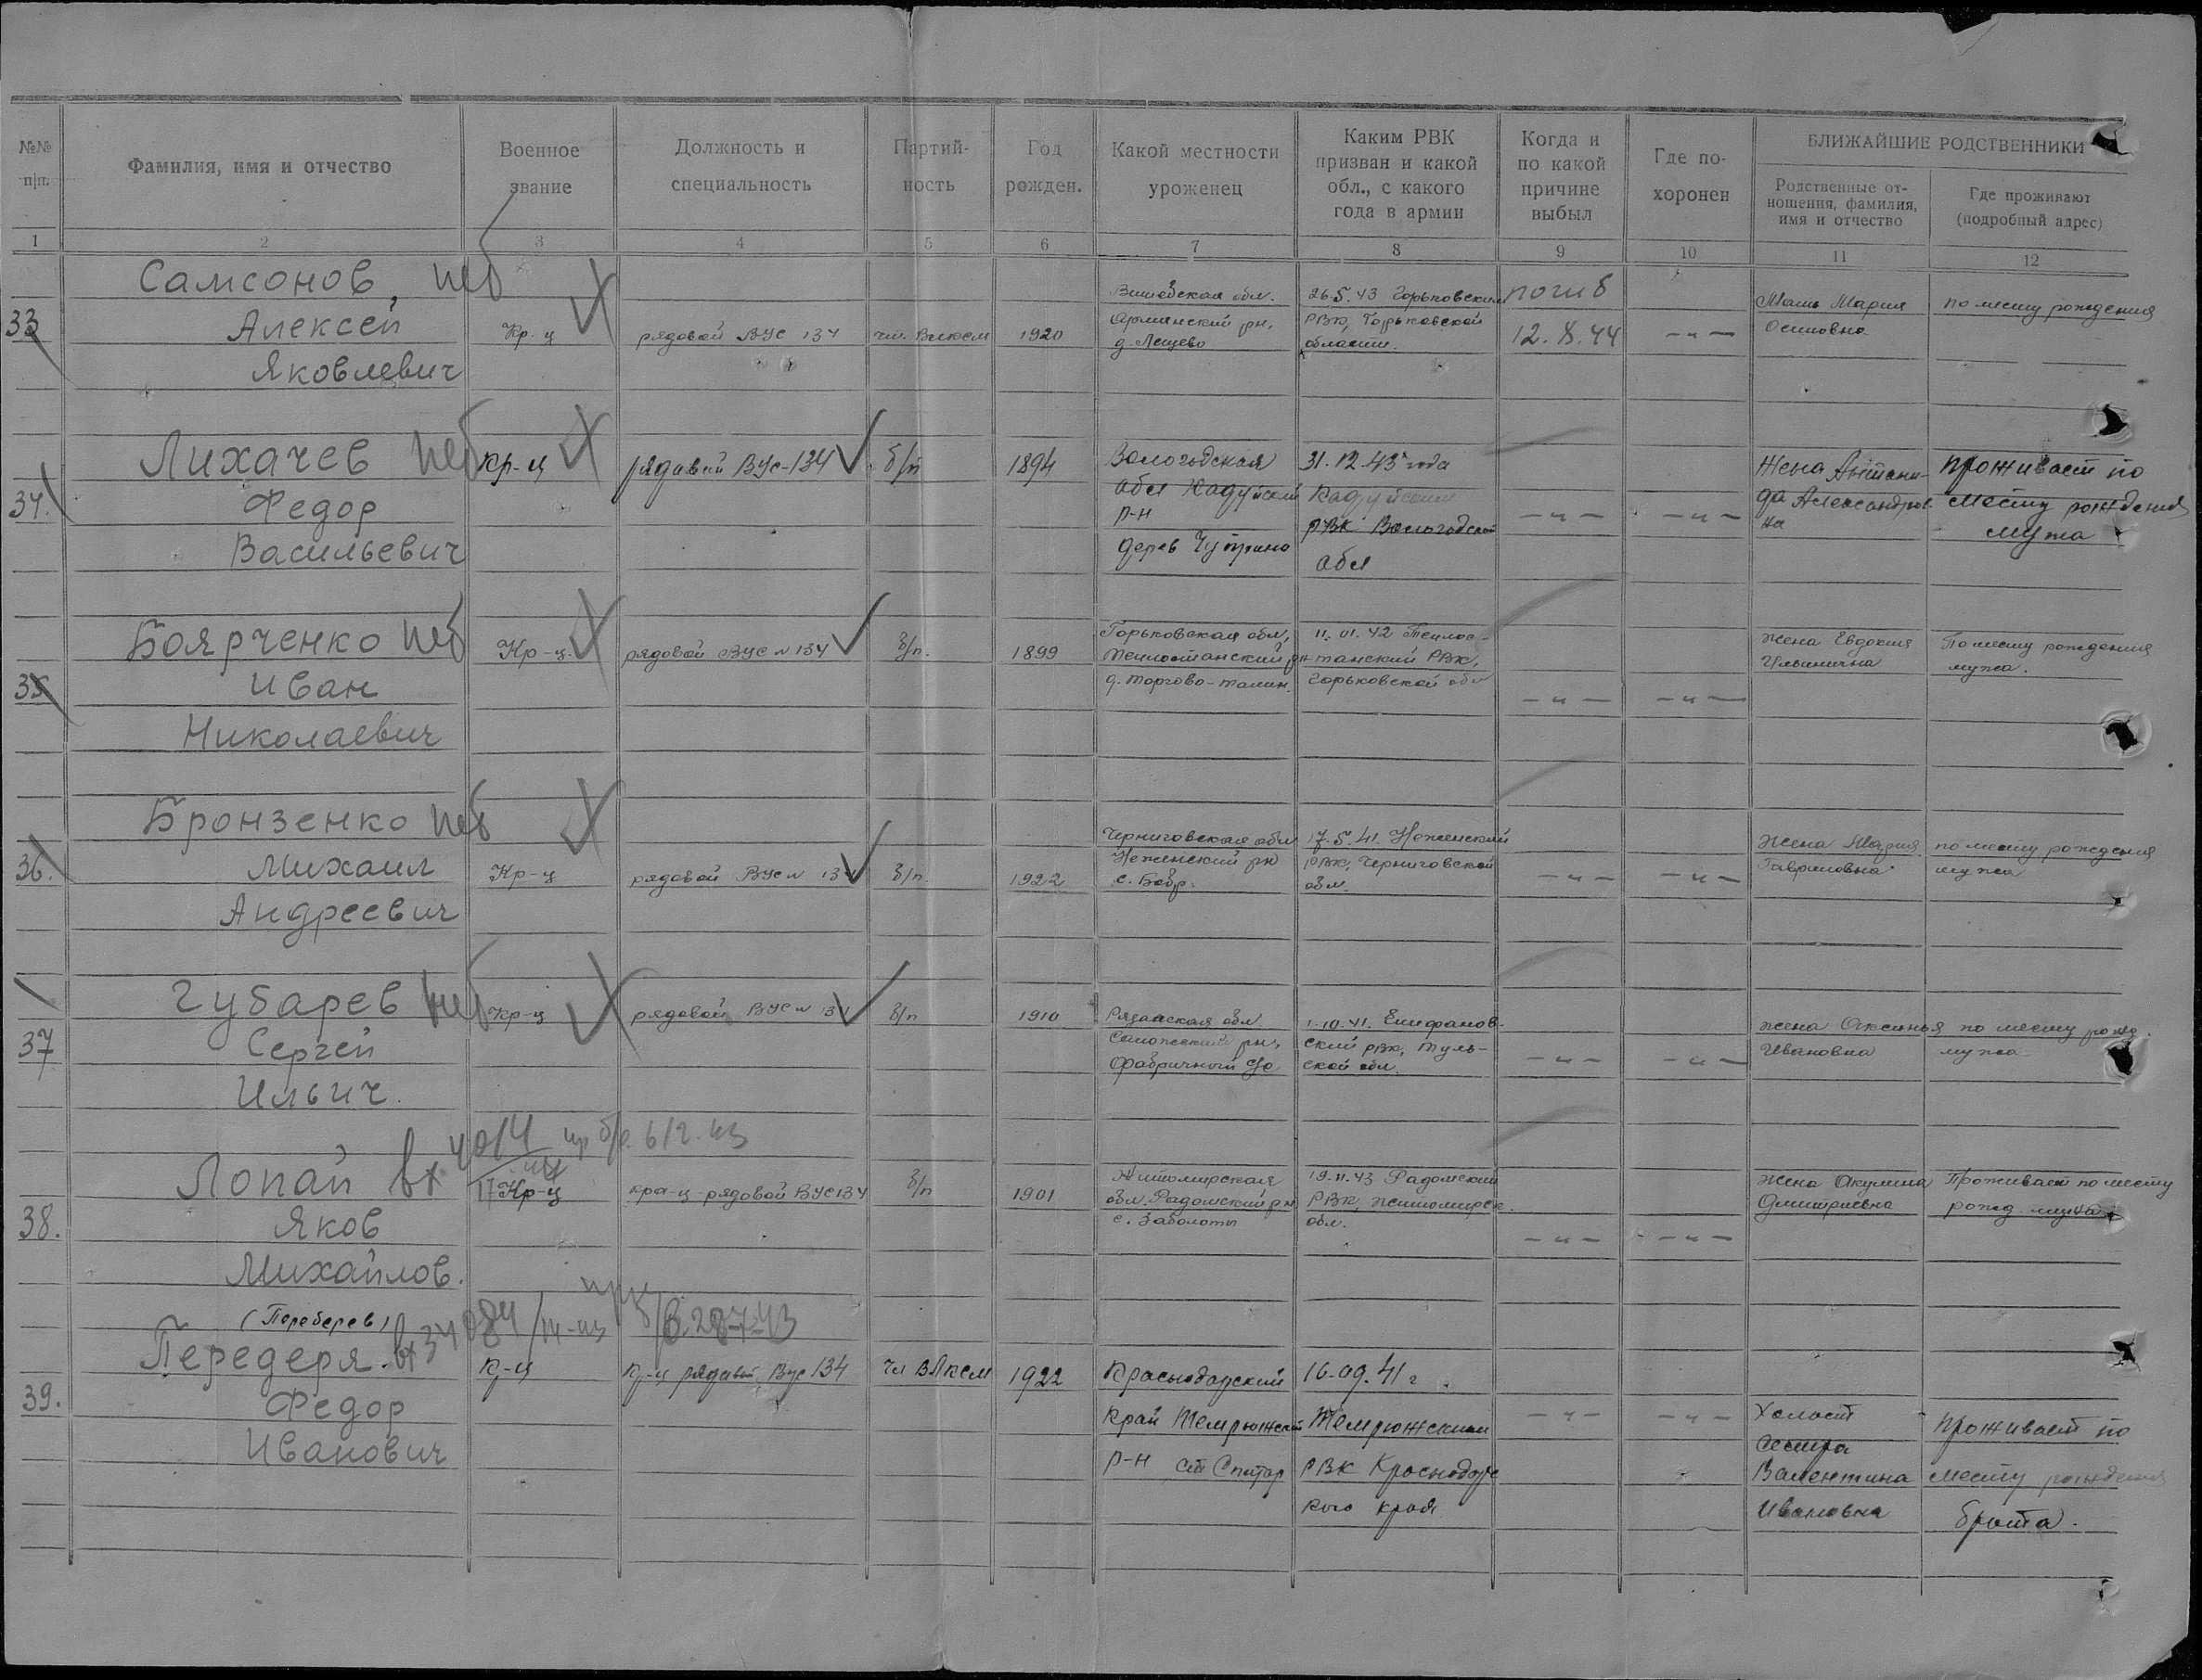 №№ п/п.
Фамилия, имя и отчество
Военное звание
Должность и специальность
Партийность
Год рожден.
Какой местности уроженец
Каким РВК призван и какой обл., с какого года в армии
Когда и по какой причине выбыл
Где похоронен
БЛИЖАЙШИЕ РОДСТВЕННИКИ
Родственные отношения, фамилия, имя и отчество
Где проживают (подробный адрес)
1 2 3 4 5 6 7 8 9 10 11 12
33
Самсонов,
Алексей
Яковлевич
Кр-ц
рядовой ВУС 134
чл. Влксм
1920
обл.
рн,
д. Лещево
26.5.43 Горьковским
РВК, Горьковской
области.
погиб
12.8.44
— " —
Мать Мария
Осиповна
по месту рождения
34.
Лихачев
Федор
Васильевич
Кр-ц
рядовой ВУс-134
б/п
1894
Вологодская
обл Кадуйский
р-н
дерев
31.12.43 года
Кадуйским
РВК Вологодской
обл
— " —
— " —
Жена Антони-
да Александров
на
проживает по
месту рождения
мужа
35
Боярченко
Иван
Николаевич
Кр-ц.
рядовой ВУС № 134
б/п.
1899
Горьковская обл,
рн
11.01.42 Теплос-
танский РВК,
Горьковской обл
— " —
— " —
Жена Евдокия
Ильинична
По месту рождения
мужа.
36.
Бронзенко
Михаил
Андреевич
Кр-ц
рядовой ВУС № 134
б/п.
1922
Черниговская обл
Неженский рн
с. Бобр.
17.5.41 Неженский
РВК, Черниговской
обл.
— " —
— " —
Жена Мария
Гавриловна
по месту рождения
мужа
37
Губарев
Сергей
Ильич.
Кр-ц
рядовой ВУС № 134
б/п
1910
Рязанская обл
рн,
1-10-41. Епифанов-
ский РВК, Туль-
ской обл.
— " —
— " —
жена Аксинья
Ивановна
по месту рожд.
мужа
38.
Лопай
Яков
Михайлов.
Кр-ц
кра-ц рядовой ВУС 134
б/п
1901
Житомирская
обл. Радомский рн
с. Заболоты
19.11.43 Радомский
РВК, Житомирск.
обл.
— " —
— " —
жена Акулина
Дмитриевна
Проживает по месту
рожд мужа
(Переберев)
39.
Передеря
Федор
Иванович
Кр-ц
Кр-ц рядовой Вус 134
Чл ВЛксм
1922
Краснодарский
Край Темрюжский
р-н
16-09.41 г.
Темрюжским
РВК Краснодарс
кого края
— " —
— " —
Холост
сестра
Валентина
Ивановна
проживает по
месту рождения
брата.